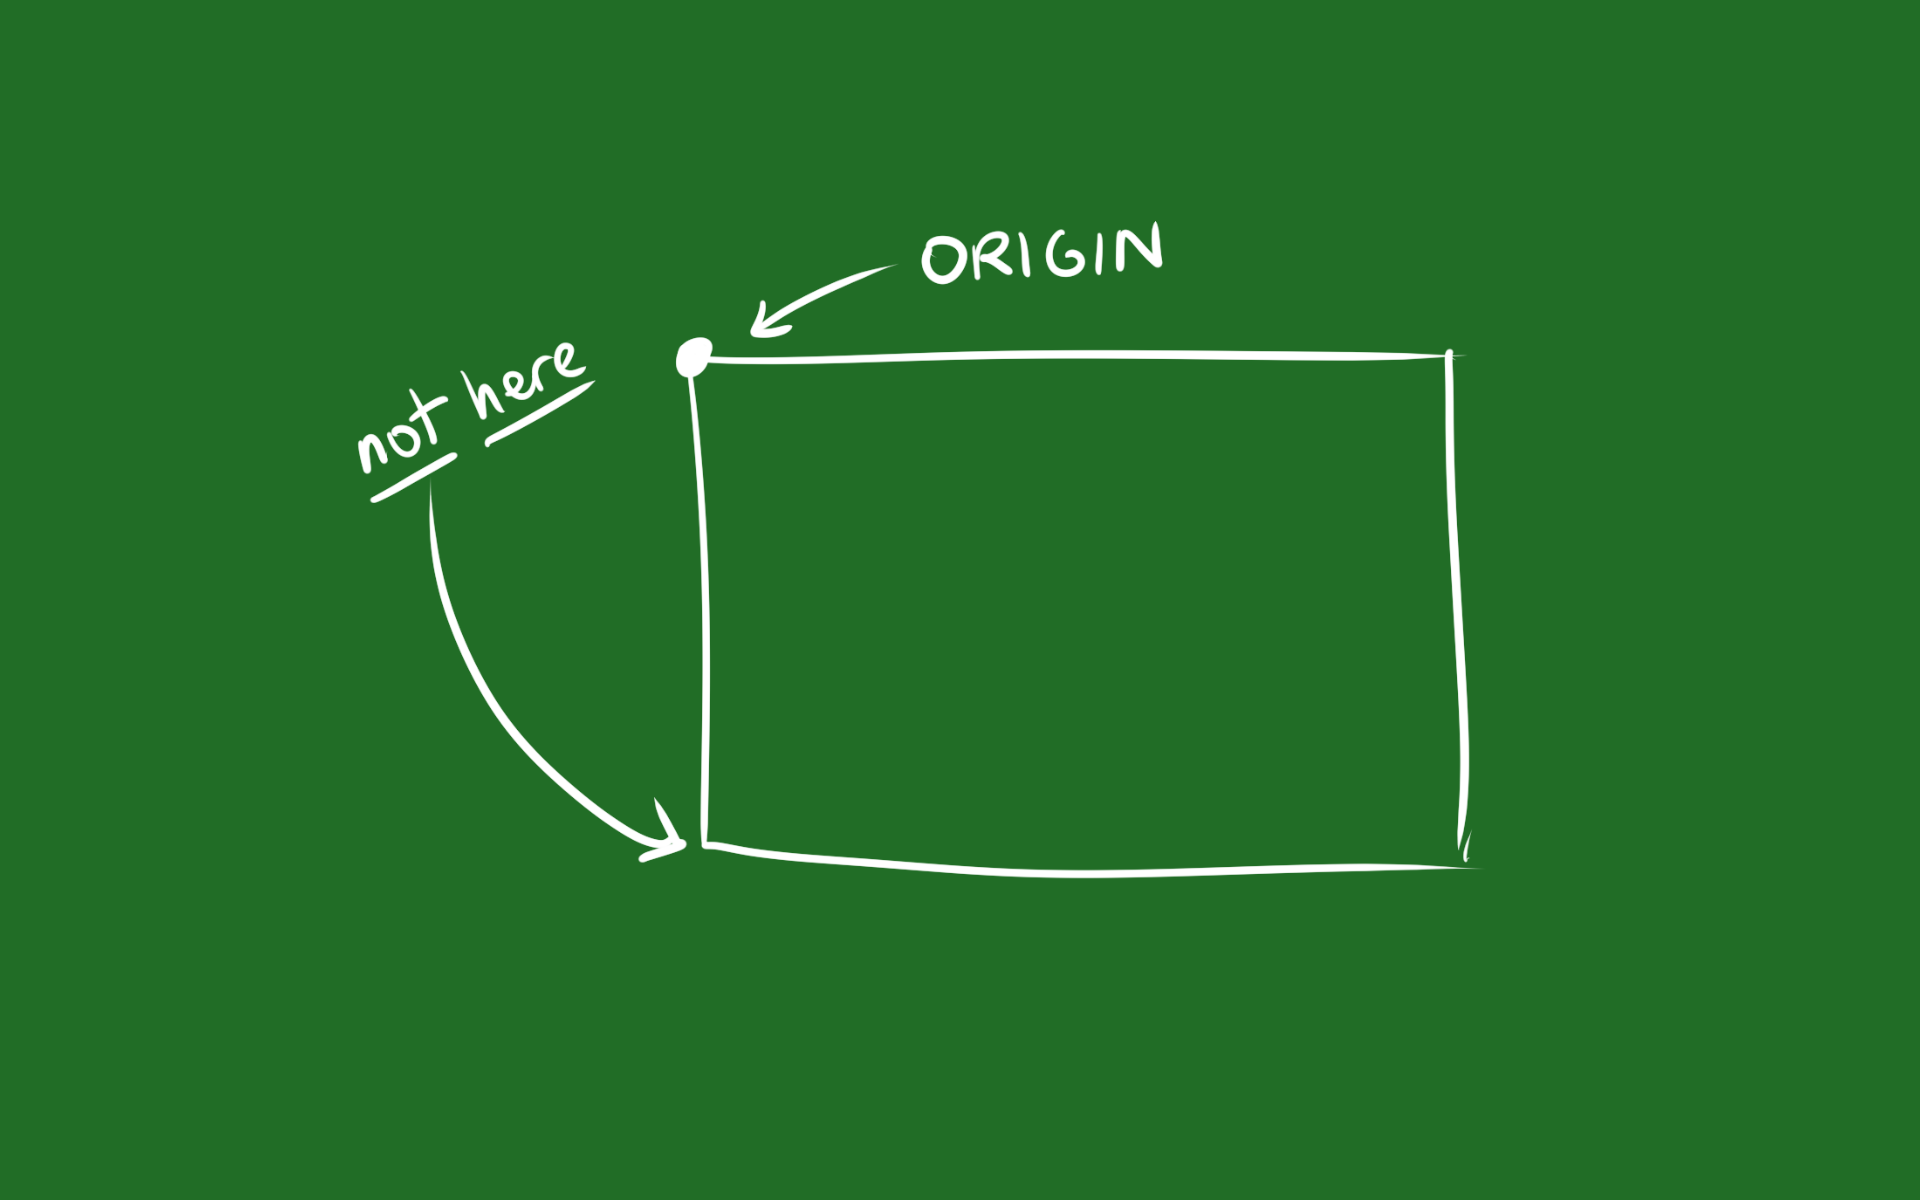 ORIGIN
not here